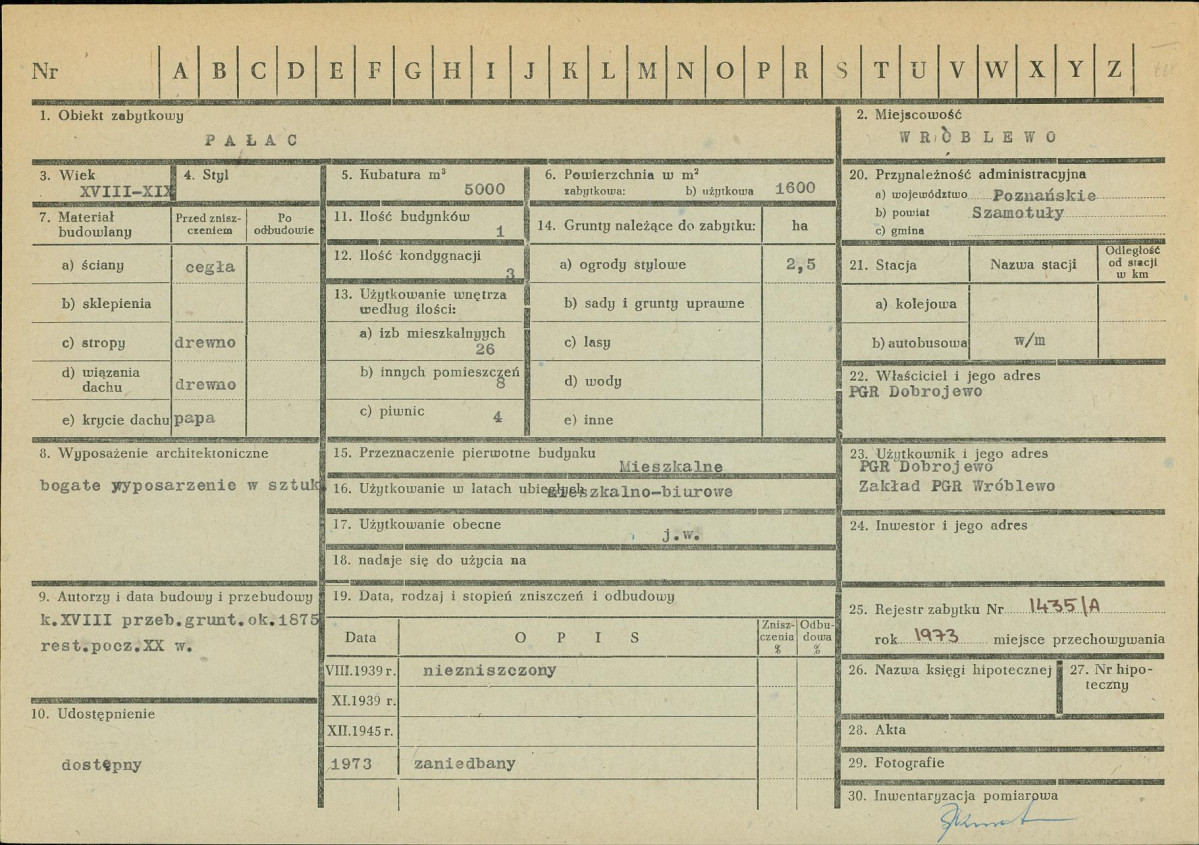 Nr A B C D E F G H I J K L M N O P R S T U V W X Y Z
1. Obiekt zabytkowy
PAŁAC
2. Miejscowość
WRÓBLEWO
3. Wiek
XVIII-XIX
4. Styl
5. Kubatura m³
5000
6. Powierzchnia w m²
zabytkowa: b) użytkowa 1600
20. Przynależność administracyjna
a) województwo Poznańskie
b) powiat Szamotuły
c) gmina
7. Materiał budowlany
Przed zniszczeniem
Po odbudowie
a) ściany cegła
b) sklepienia
c) stropy drewno
d) wiązania dachu drewno
e) krycie dachu papa
11. Ilość budynków
1
12. Ilość kondygnacji
3
13. Użytkowanie wnętrza
według ilości:
a) izb mieszkalnyych
26
b) innych pomieszczeń
8
c) piwnic 4
14. Grunty należące do zabytku: ha
a) ogrody stylowe 2,5
b) sady i grunty uprawne
c) lasy
d) wody
e) inne
21. Stacja Nazwa stacji Odległość od stacji w km
a) kolejowa
b) autobusowa w/m
22. Właściciel i jego adres
PGR Dobrojewo
8. Wyposażenie architektoniczne
bogate wyposarzenie w sztuk
15. Przeznaczenie pierwotne budynku
Mieszkalne
16. Użytkowanie w latach ubiegłych mieszkalno-biurowe
17. Użytkowanie obecne
j.w.
18. nadaje się do użycia na
23. Użytkownik i jego adres
PGR Dobrojewo
Zakład PGR Wróblewo
24. Inwestor i jego adres
9. Autorzy i data budowy i przebudowy
k.XVIII przeb.grunt.ok.1875
rest.pocz.XX w.
19. Data, rodzaj i stopień zniszczeń i odbudowy
Data OPIS Zniszczenia % Odbudowa %
VIII.1939 r. niezniszczony
XI.1939 r.
XII.1945 r.
1973 zaniedbany
10. Udostępnienie
dostępny
25. Rejestr zabytku Nr 1435/A
rok 1973 miejsce przechowywania
26. Nazwa księgi hipotecznej
27. Nr hipoteczny
28. Akta
29. Fotografie
30. Inwentaryzacja pomiarowa